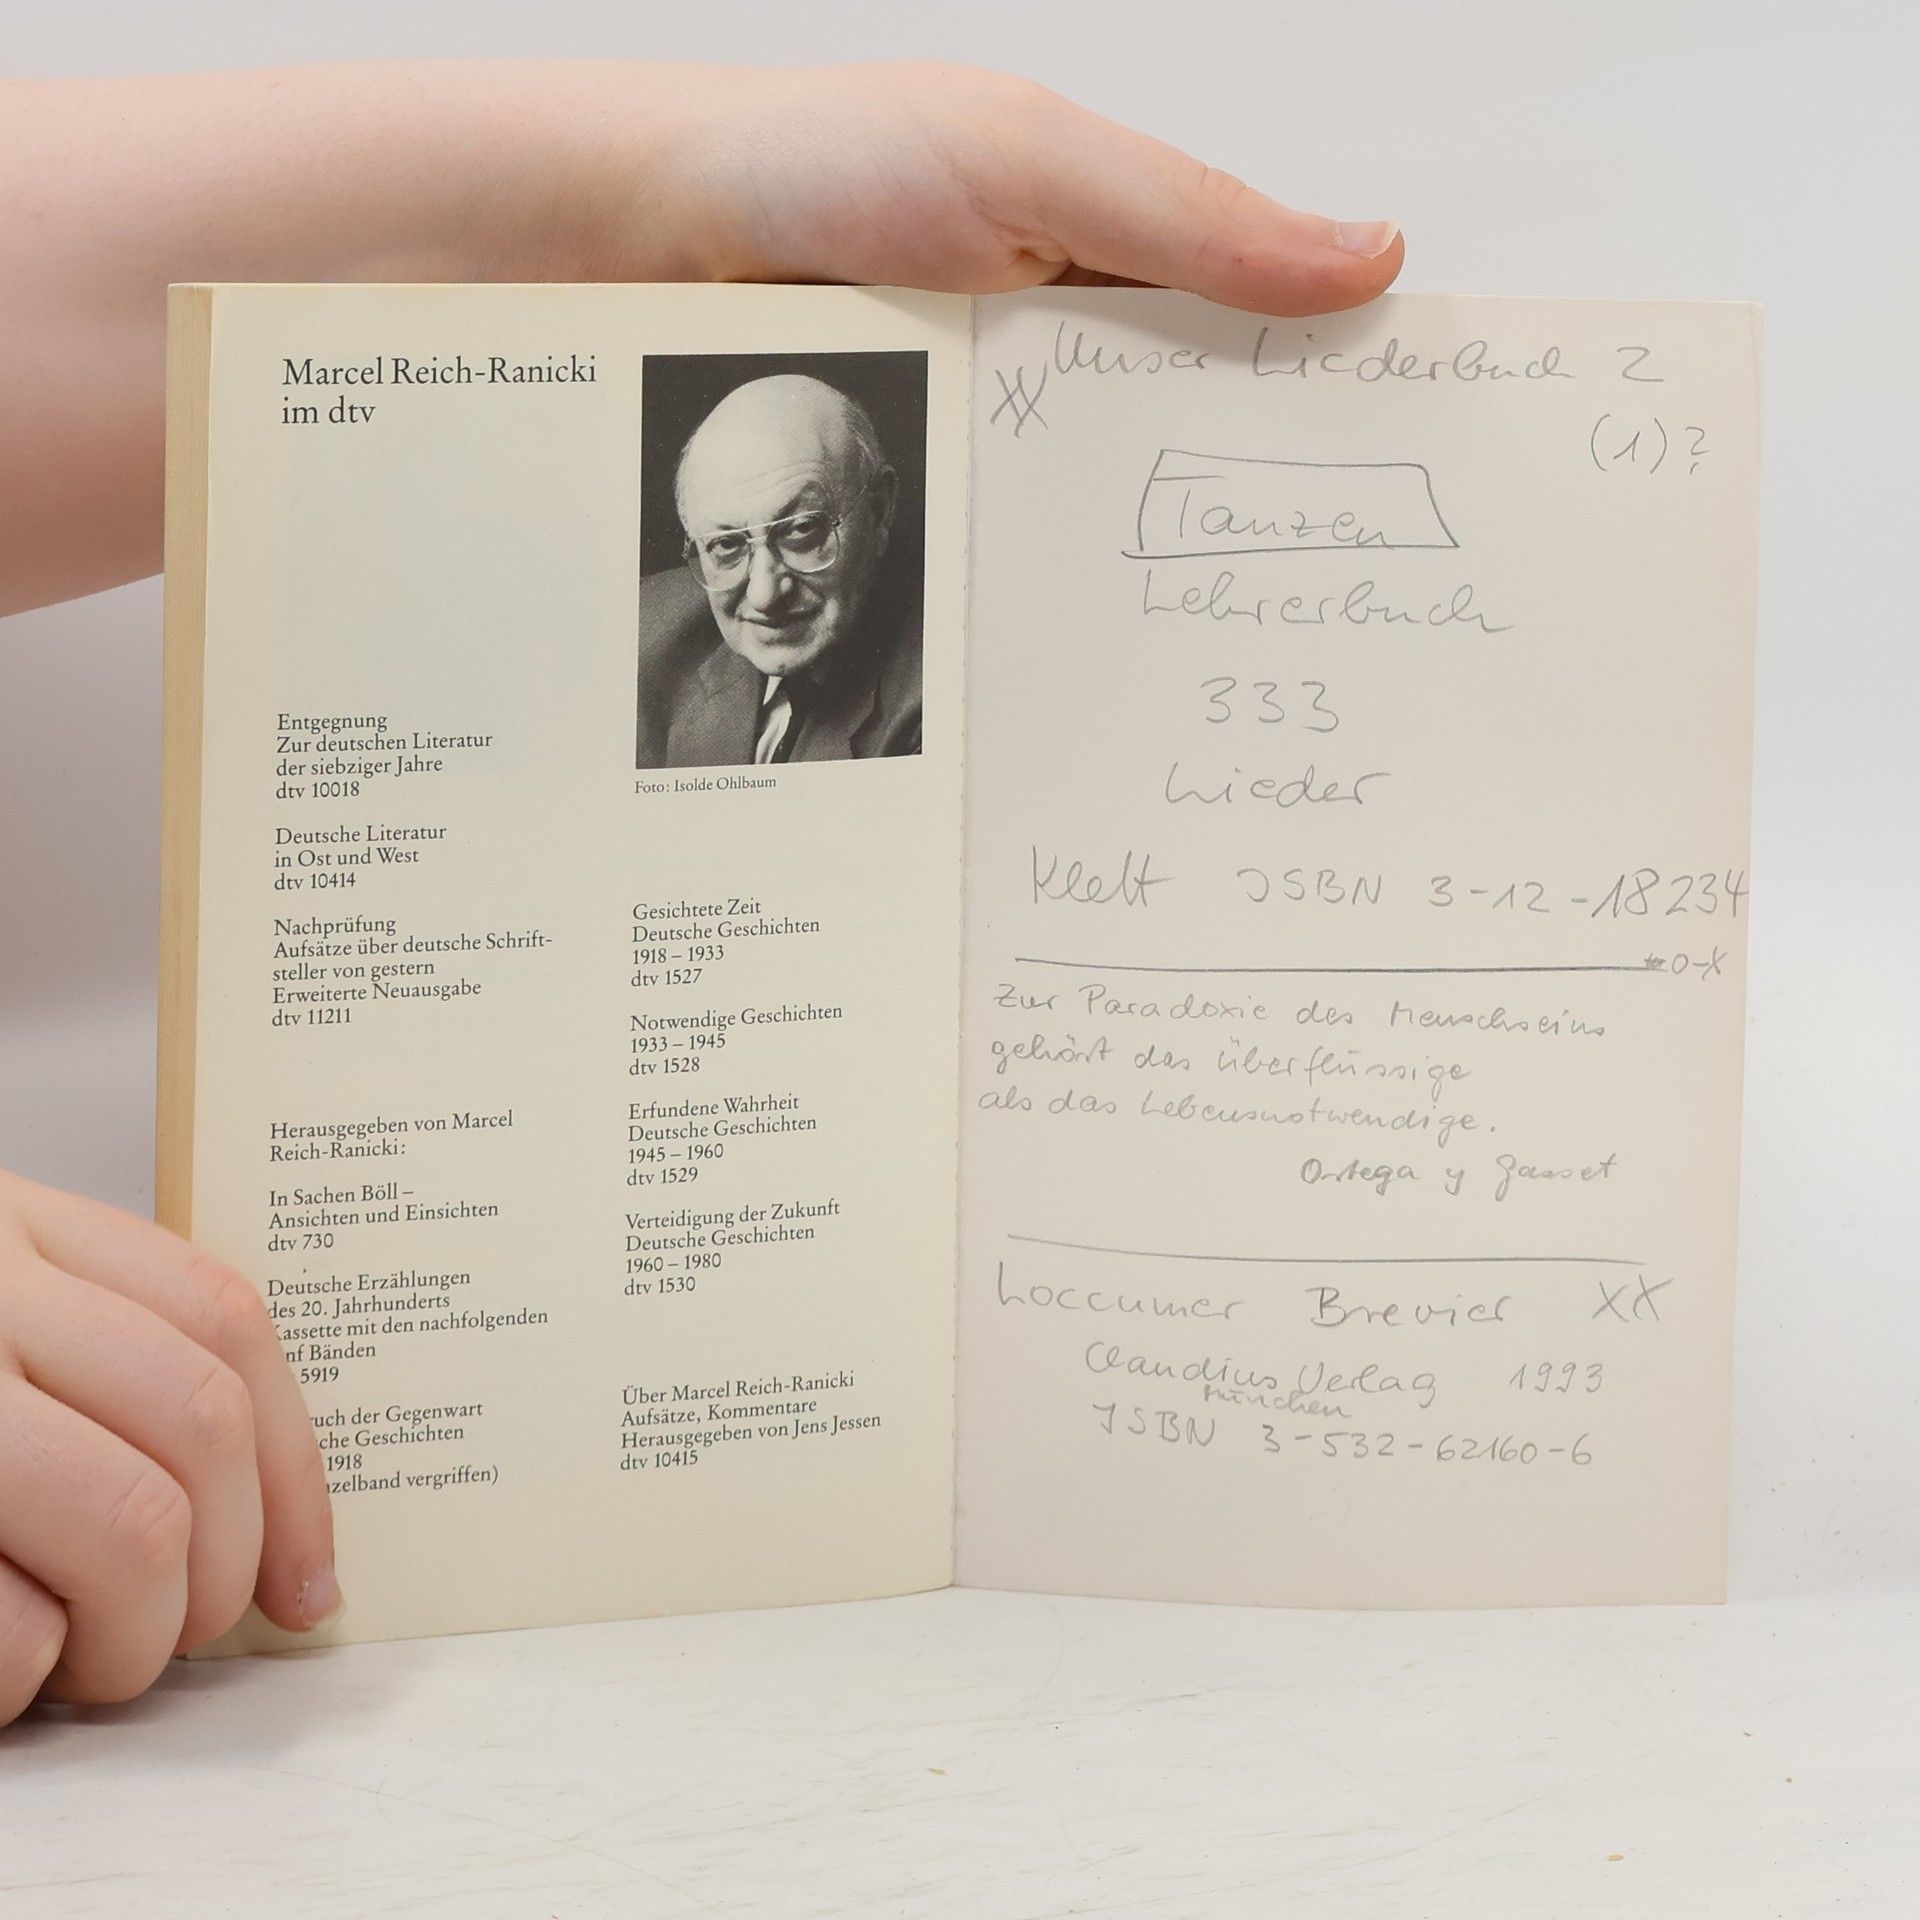 Marcel Reich-Ranicki
im dtv
Foto: Isolde Ohlbaum
Entgegnung
Zur deutschen Literatur
der siebziger Jahre
dtv 10018
Deutsche Literatur
in Ost und West
dtv 10414
Nachprüfung
Aufsätze über deutsche Schrift-
steller von gestern
Erweiterte Neuausgabe
dtv 11211
Herausgegeben von Marcel
Reich-Ranicki:
In Sachen Böll –
Ansichten und Einsichten
dtv 730
Deutsche Erzählungen
des 20. Jahrhunderts
Kassette mit den nachfolgenden
nf Bänden
5919
uch der Gegenwart
che Geschichten
1918
nzelband vergriffen)
Gesichtete Zeit
Deutsche Geschichten
1918 – 1933
dtv 1527
Notwendige Geschichten
1933 – 1945
dtv 1528
Erfundene Wahrheit
Deutsche Geschichten
1945 – 1960
dtv 1529
Verteidigung der Zukunft
Deutsche Geschichten
1960 – 1980
dtv 1530
Über Marcel Reich-Ranicki
Aufsätze, Kommentare
Herausgegeben von Jens Jessen
dtv 10415
XX Unser Liederbuch 2
(1)?
Tanzen
Lehrerbuch
333
Lieder
Klett ISBN 3-12-18234
0-X
Zur Paradoxie des Menschseins
gehört das Überflüssige
als das Lebensnotwendige.
Ortega y Gasset
Loccumer Brevier XX
Claudius Verlag 1993
München
ISBN 3-532-62160-6